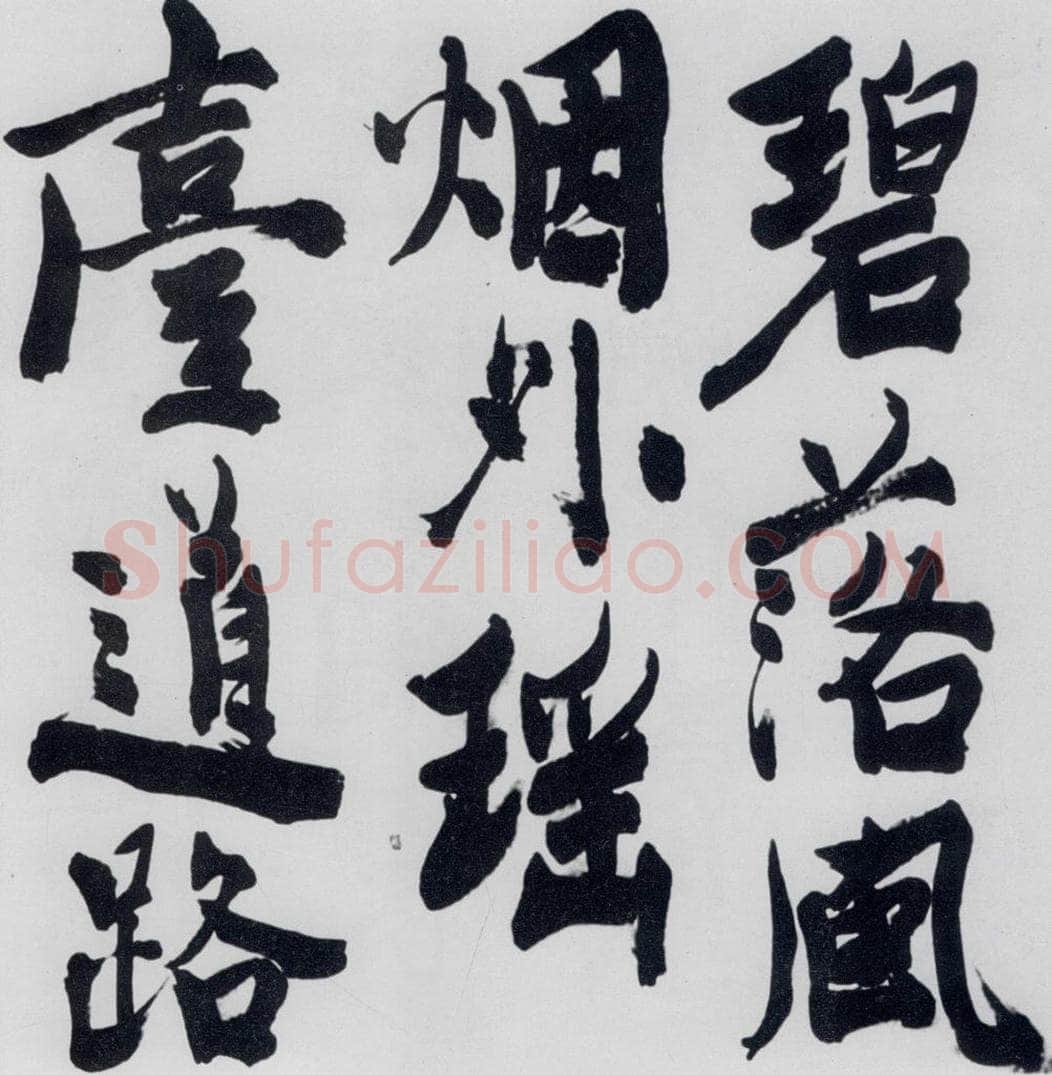 碧落風
烟外瑶
臺道路
Shufaziliao.COM